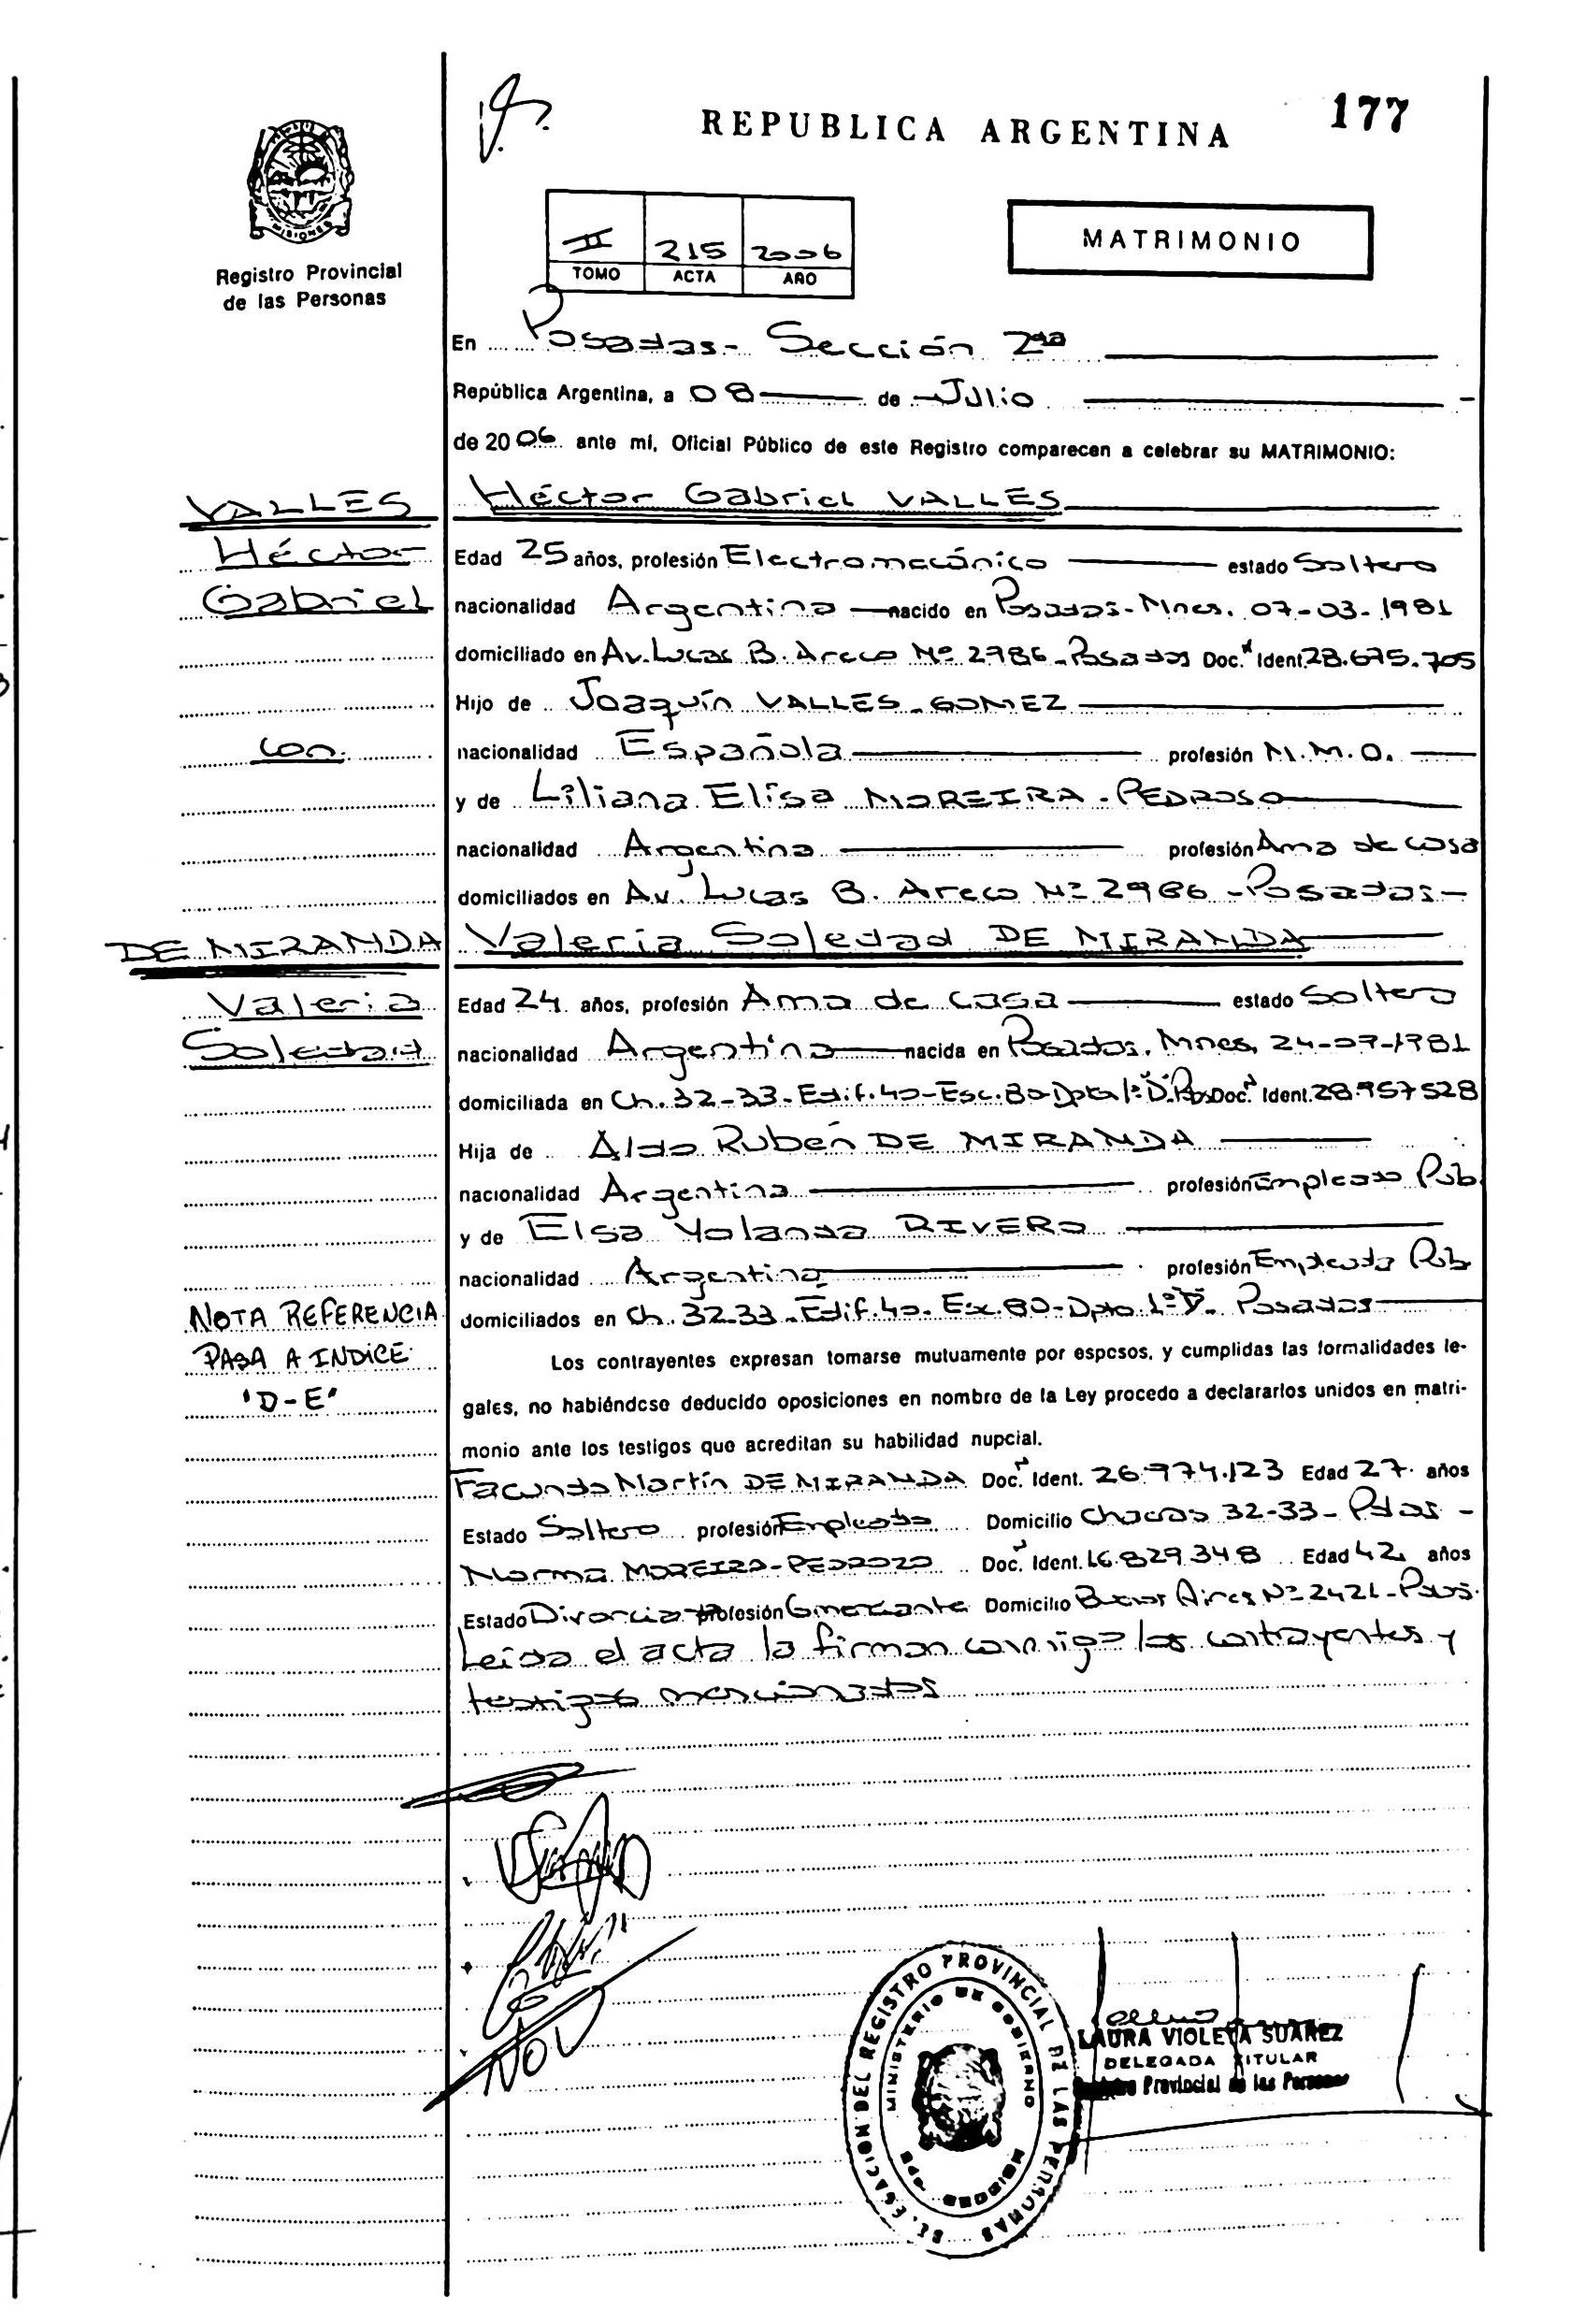 177
REPUBLICA ARGENTINA
MISIONES
Registro Provincial
de las Personas
II 215 2006
TOMO ACTA AÑO
MATRIMONIO
En Posadas- Sección 2da
República Argentina, a 08 de Julio
de 20 06 ante mí, Oficial Público de este Registro comparecen a celebrar su MATRIMONIO:
VALLES
Héctor Gabriel VALLES
Héctor
Edad 25 años, profesión Electromecánico estado Soltero
Gabriel
nacionalidad Argentina nacido en Posadas- Mnes. 07-03-1981
domiciliado en Av. Lucas B. Areco Nº 2986 - Posadas Doc. Ident. 28.675.705
Hijo de Joaquín VALLES-GOMEZ
con
nacionalidad Española profesión M.M.O.
y de Liliana Elisa MOREIRA-PEDROSO
nacionalidad Argentina profesión Ama de casa
domiciliados en Av. Lucas B. Areco Nº 2986 - Posadas-
DE MIRANDA
Valeria Soledad DE MIRANDA
Valeria
Edad 24 años, profesión Ama de Casa estado Soltera
Soledad
nacionalidad Argentina nacida en Posadas, Mnes, 24-09-1981
domiciliada en Ch. 32-33- Edif. 40-Esc. 80-Dpto 1º D. Pos Doc. Ident. 28.957528
Hija de Aldo Rubén DE MIRANDA
nacionalidad Argentina profesión Empleado Púb.
y de Elsa Yolanda RIVERO
nacionalidad Argentina profesión Empleada Púb
domiciliados en Ch. 32-33 - Edif. 40- Esc 80-Dpto. 1º D. Posadas
NOTA REFERENCIA
PASA A INDICE
"D-E"
Los contrayentes expresan tomarse mutuamente por esposos, y cumplidas las formalidades le-
gales, no habiéndose deducido oposiciones en nombre de la Ley procedo a declararlos unidos en matri-
monio ante los testigos que acreditan su habilidad nupcial.
Facundo Martín DE MIRANDA Doc. Ident. 26.974.123 Edad 27 años
Estado Soltero profesión Empleado Domicilio Chacras 32-33- Pdas -
Norma MOREIRA-PEDROZO Doc. Ident. 16.829.348 Edad 42 años
Estado Divorciada profesión Comerciante Domicilio Buenos Aires Nº 2421-Pdas.
Leída el acta la firman conmigo los contrayentes y
testigos mencionados
DELEGACION DEL REGISTRO PROVINCIAL DE LAS PERSONAS
MINISTERIO DE GOBIERNO
MISIONES
LAURA VIOLETA SUAREZ
DELEGADA TITULAR
Registro Provincial de las Personas